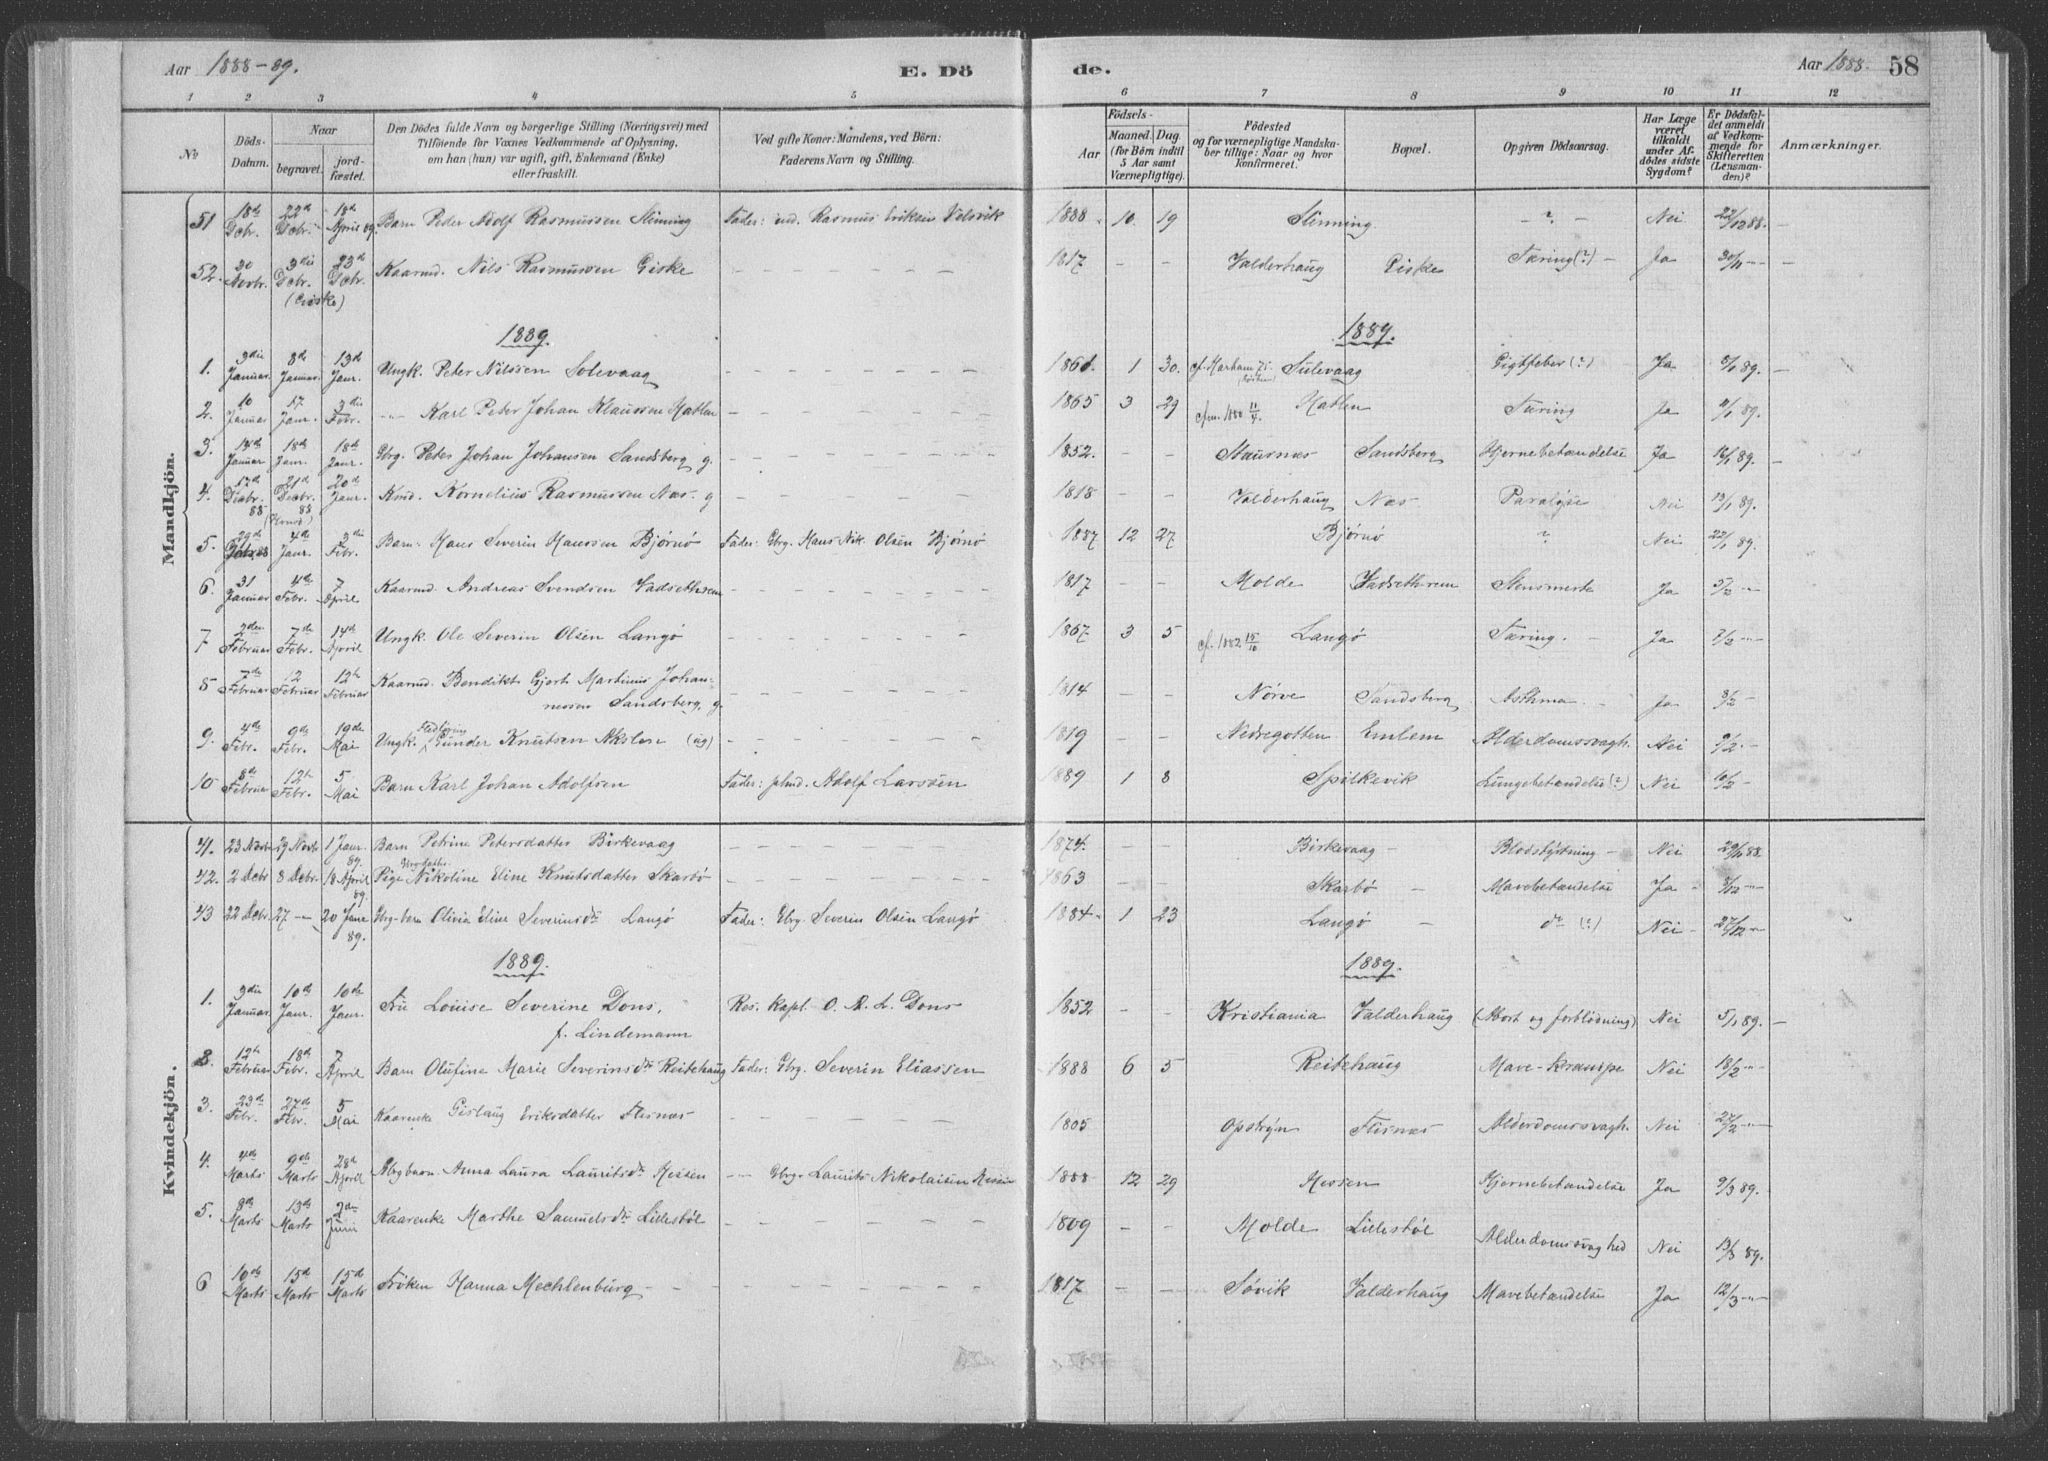 Aar 1888-89.
E. Dö
de.
Aar 1888. 58
1 2 3 4 5 6 7 8 9 10 11 12
No
Döds-Datum.
Naar
begravet.
jordfæstet.
Den Dödes fulde Navn og borgerlige Stilling (Næringsvei) med Tilföiende for Voxnes Vedkommende af Oplysning, om han (hun) var ugift, gift, Enkemand (Enke) eller fraskilt.
Ved gifte Koner: Mandens, ved Börn: Faderens Navn og Stilling.
Födsels-
Aar
Maaned. Dag.
(for Börn indtil 5 Aar samt Værnepligtige).
Födested og for værnepligtige Mandskaber tillige: Naar og hvor Konfirmeret.
Bopæl.
Opgiven Dödsaarsag.
Har Læge været tilkaldt under Afdödes sidste Sygdom?
Er Dödsfaldet anmeldt af Vedkommende for Skifteretten (Lensmanden)?
Anmærkninger.
Mandkjön.
51 18de Dcbr. 22de Dcbr. 18de April 89. Barn Peder Adolf Rasmussen Slinning Fader: ind. Rasmus Eriksen Velsvik 1888 10. 19 Slinning - ? - Nei 22/12 88. -
52. 30 Novbr. 3die Dcbr. (Giske) 23de Dcbr. Kaarmd. Nils Rasmussen Giske 1817 - - Valderhaug Giske Tæring (?) - Ja 30/11 - -
1889. 1889.
1. 3die Januar 8de Januar. 13de Janr. Ungk. Peter Nilssen Solevaag 1868. 1 30. Sulevaag Gigtfeber (?) Ja 8/1 89. -
2. 10 Januar 17. Janr. 3die Febr. Karl Peter Johan Klaussen Hatlen 1865 3 29 cfm. 1880 11/4. Hatlen Tæring Ja 11/1 89.
3. 14de Januar 18de Janr. 18de Janr. Gbrg. Peter Johan Johansen Sandsberg g. 1852. - - Staursnes Sandsberg Hjernebetændelse Ja 16/1 89. -
4. 17de Decbr. 88 21de Decbr. 88 20de Janr. Kmd. Kornelius Rasmussen Næs. g 1818 - - Valderhaug Næs Paralyse Nei 13/1 89.
5. 29de 4de Janr. 3die Febr. Barn: Hans Severin Hanssen Bjørnø Fader: Gbrg. Hans Nik. Olsen Bjørnø 1887 12 27 Bjørnø ? Nei 22/1 89.
6. 31 Januar 4de Febr. 7 April Kaarmd. Andreas Svendsen Vadsethrem 1817 - - Molde Vadsethrem Stensmerte Ja 5/2 - -
7 2den Februar 7de Febr. 14de April Ungk. Ole Severin Olsen Langø 1867 3 5 cf. 1882 15/10 Langø Tæring. Ja 7/2 - -
8 7de Februar 2 Februar 12te Februar Kaarmd. Bendikt Gjert Martinus Johannessen Sandsberg. g. 1814 - - Nørve Sandsberg Asthma Ja 8/2 -
9. 4de Febr. 9de Febr. 19de Mai Ungk. Gunder Knutsen Akslen (ug) 1819 - - Nedregotten Emlem Alderdomssvagh. Nei 9/2. -
10 8de Februar 12te Febr. 5 Mai Barn Karl Johan Adolfsen Fader: plmd. Adolf Larssen 1889 1 8 Spilkevik Lungebetændelse (?) Nei 16/2 -
Kvindekjön.
41. 23 Novbr 29 Novbr 1 Janr. 89. Barn Petrine Petersdatter Birkevaag 1874. - - Birkevaag - Blodstyrtning - Nei 29/11 88.
42. 2 Dcbr 8 Dcbr. 18 April 89. Pige Nikoline Eline Knutsdatter Skarbø 1863 - - Skarbø - Mavebetændelse Ja - 8/12 - -
43 22 Dcbr. 27 - 20 Janr 89. Gbrg-barn Olivia Eline Severinsdr Langø Fader: Gbrg. Severin Olsen Langø 1884 1 23 Langø - do (?) Nei - 27/12 - -
1889. 1889.
1. 3die Januar 10de Janr. 10de Janr. Fru Louise Severine Dons, f. Lindemann Res. Kapl. O. R. A. Dons 1852 - - Kristiania Valderhaug (Abort og forblødning) Nei 5/1 89. -
2. 12te Februar 18de Febr. 7 April Barn Olufine Marie Severinsdr Reitehaug Fader: Gbrg. Severin Eliassen 1888 6 5 Reitehaug Mave-krampe Nei 18/2 - -
3. 23de Febr. 27de Febr. 5 Mai Kaarenke Gislaug Eriksdatter Flisnæs 1805 - - Opstryn Flisnæs Alderdomssvagh. Nei 27/2 - -
4. 4de Marts 9de Marts 28de April Gbrgbarn Anna Laura Lauritsdr Hessen - - Gbrg. Laurits Nikolaisen Hessen 1888 12 29 Hessen Hjernebetændelse Ja 9/3 89.
5. 8de Marts 13de Marts 2den Juni Kaarenke Marthe Samuelsdr Lillestøl 1809 - - Molde Lillestøl Alderdomssvaghed Nei 13/3 89.
6 10de Marts 15de Marts 15de Marts Frøken Hanna Mechlenburg - - 1817 - - Søvik Valderhaug Mavebetændelse Ja 12/3 - -